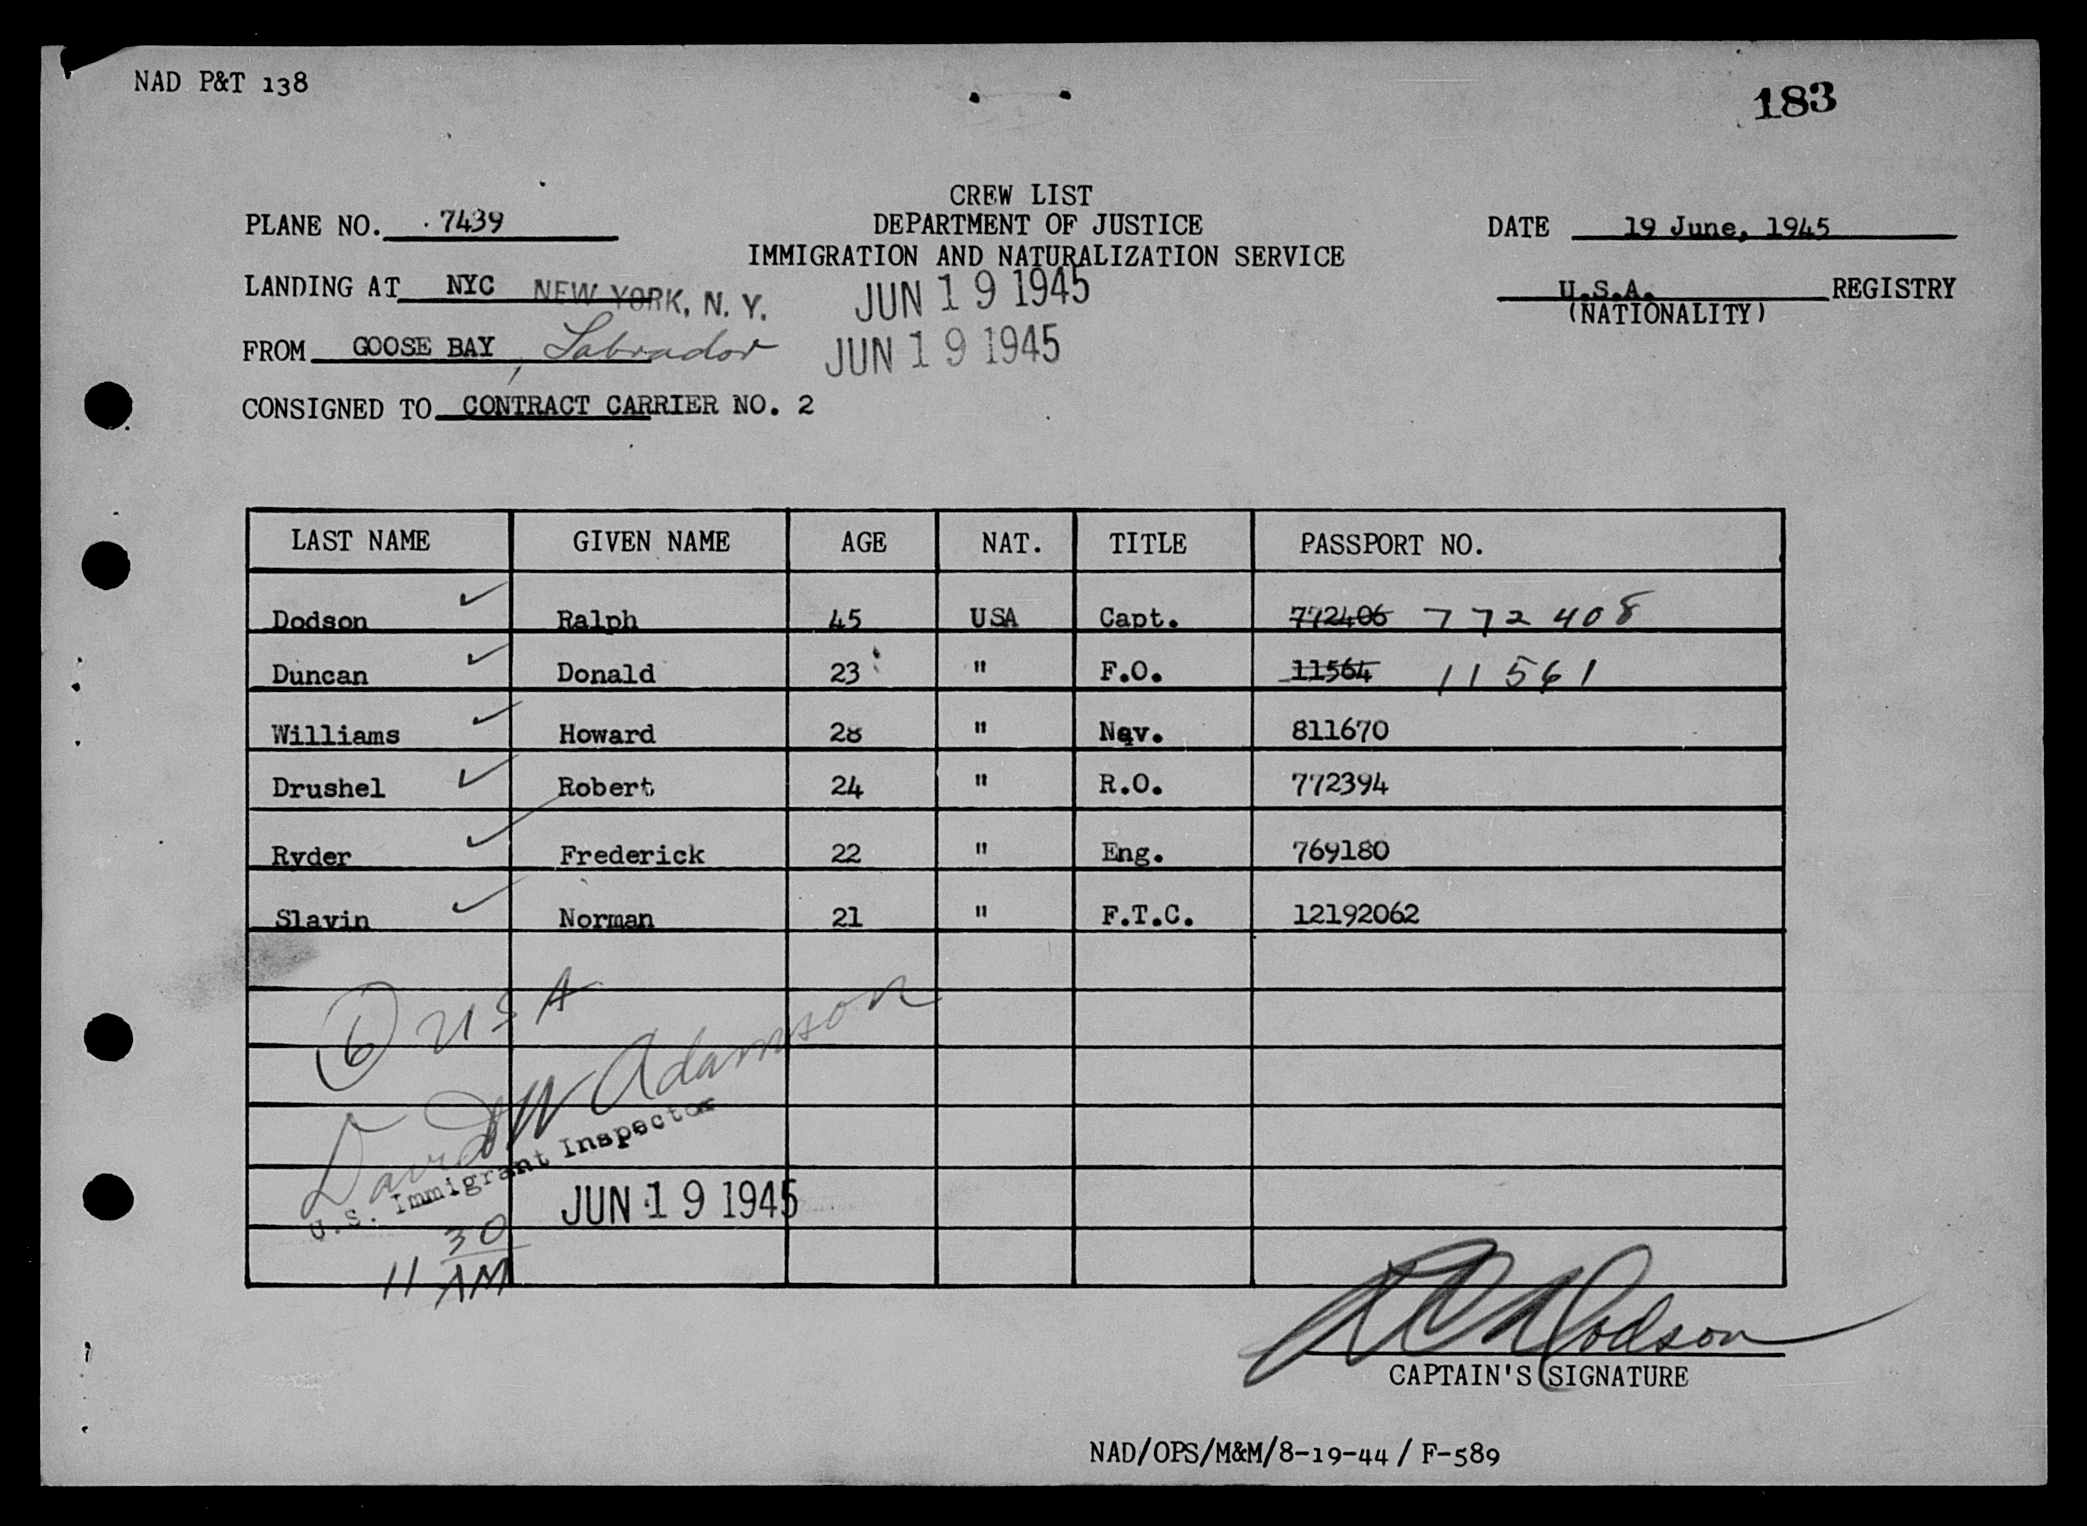 NAD P&T 138
183
CREW LIST
PLANE NO. 7439 DEPARTMENT OF JUSTICE DATE 19 June, 1945
IMMIGRATION AND NATURALIZATION SERVICE
LANDING AT NYC NEW YORK, N. Y. JUN 19 1945 U.S.A. REGISTRY
(NATIONALITY)
FROM GOOSE BAY, Labrador JUN 19 1945
CONSIGNED TO CONTRACT CARRIER NO. 2
LAST NAME GIVEN NAME AGE NAT. TITLE PASSPORT NO.
Dodson Ralph 45 USA Capt. 772406 772408
Duncan Donald 23 " F.O. 11564 11561
Williams Howard 28 " Nav. 811670
Drushel Robert 24 " R.O. 772394
Ryder Frederick 22 " Eng. 769180
Slavin Norman 21 " F.T.C. 12192062
6 USA
David W Adamson
U.S. Immigrant Inspector
JUN 19 1945
11 30 AM
Dodson
CAPTAIN'S SIGNATURE
NAD/OPS/M&M/8-19-44 / F-589